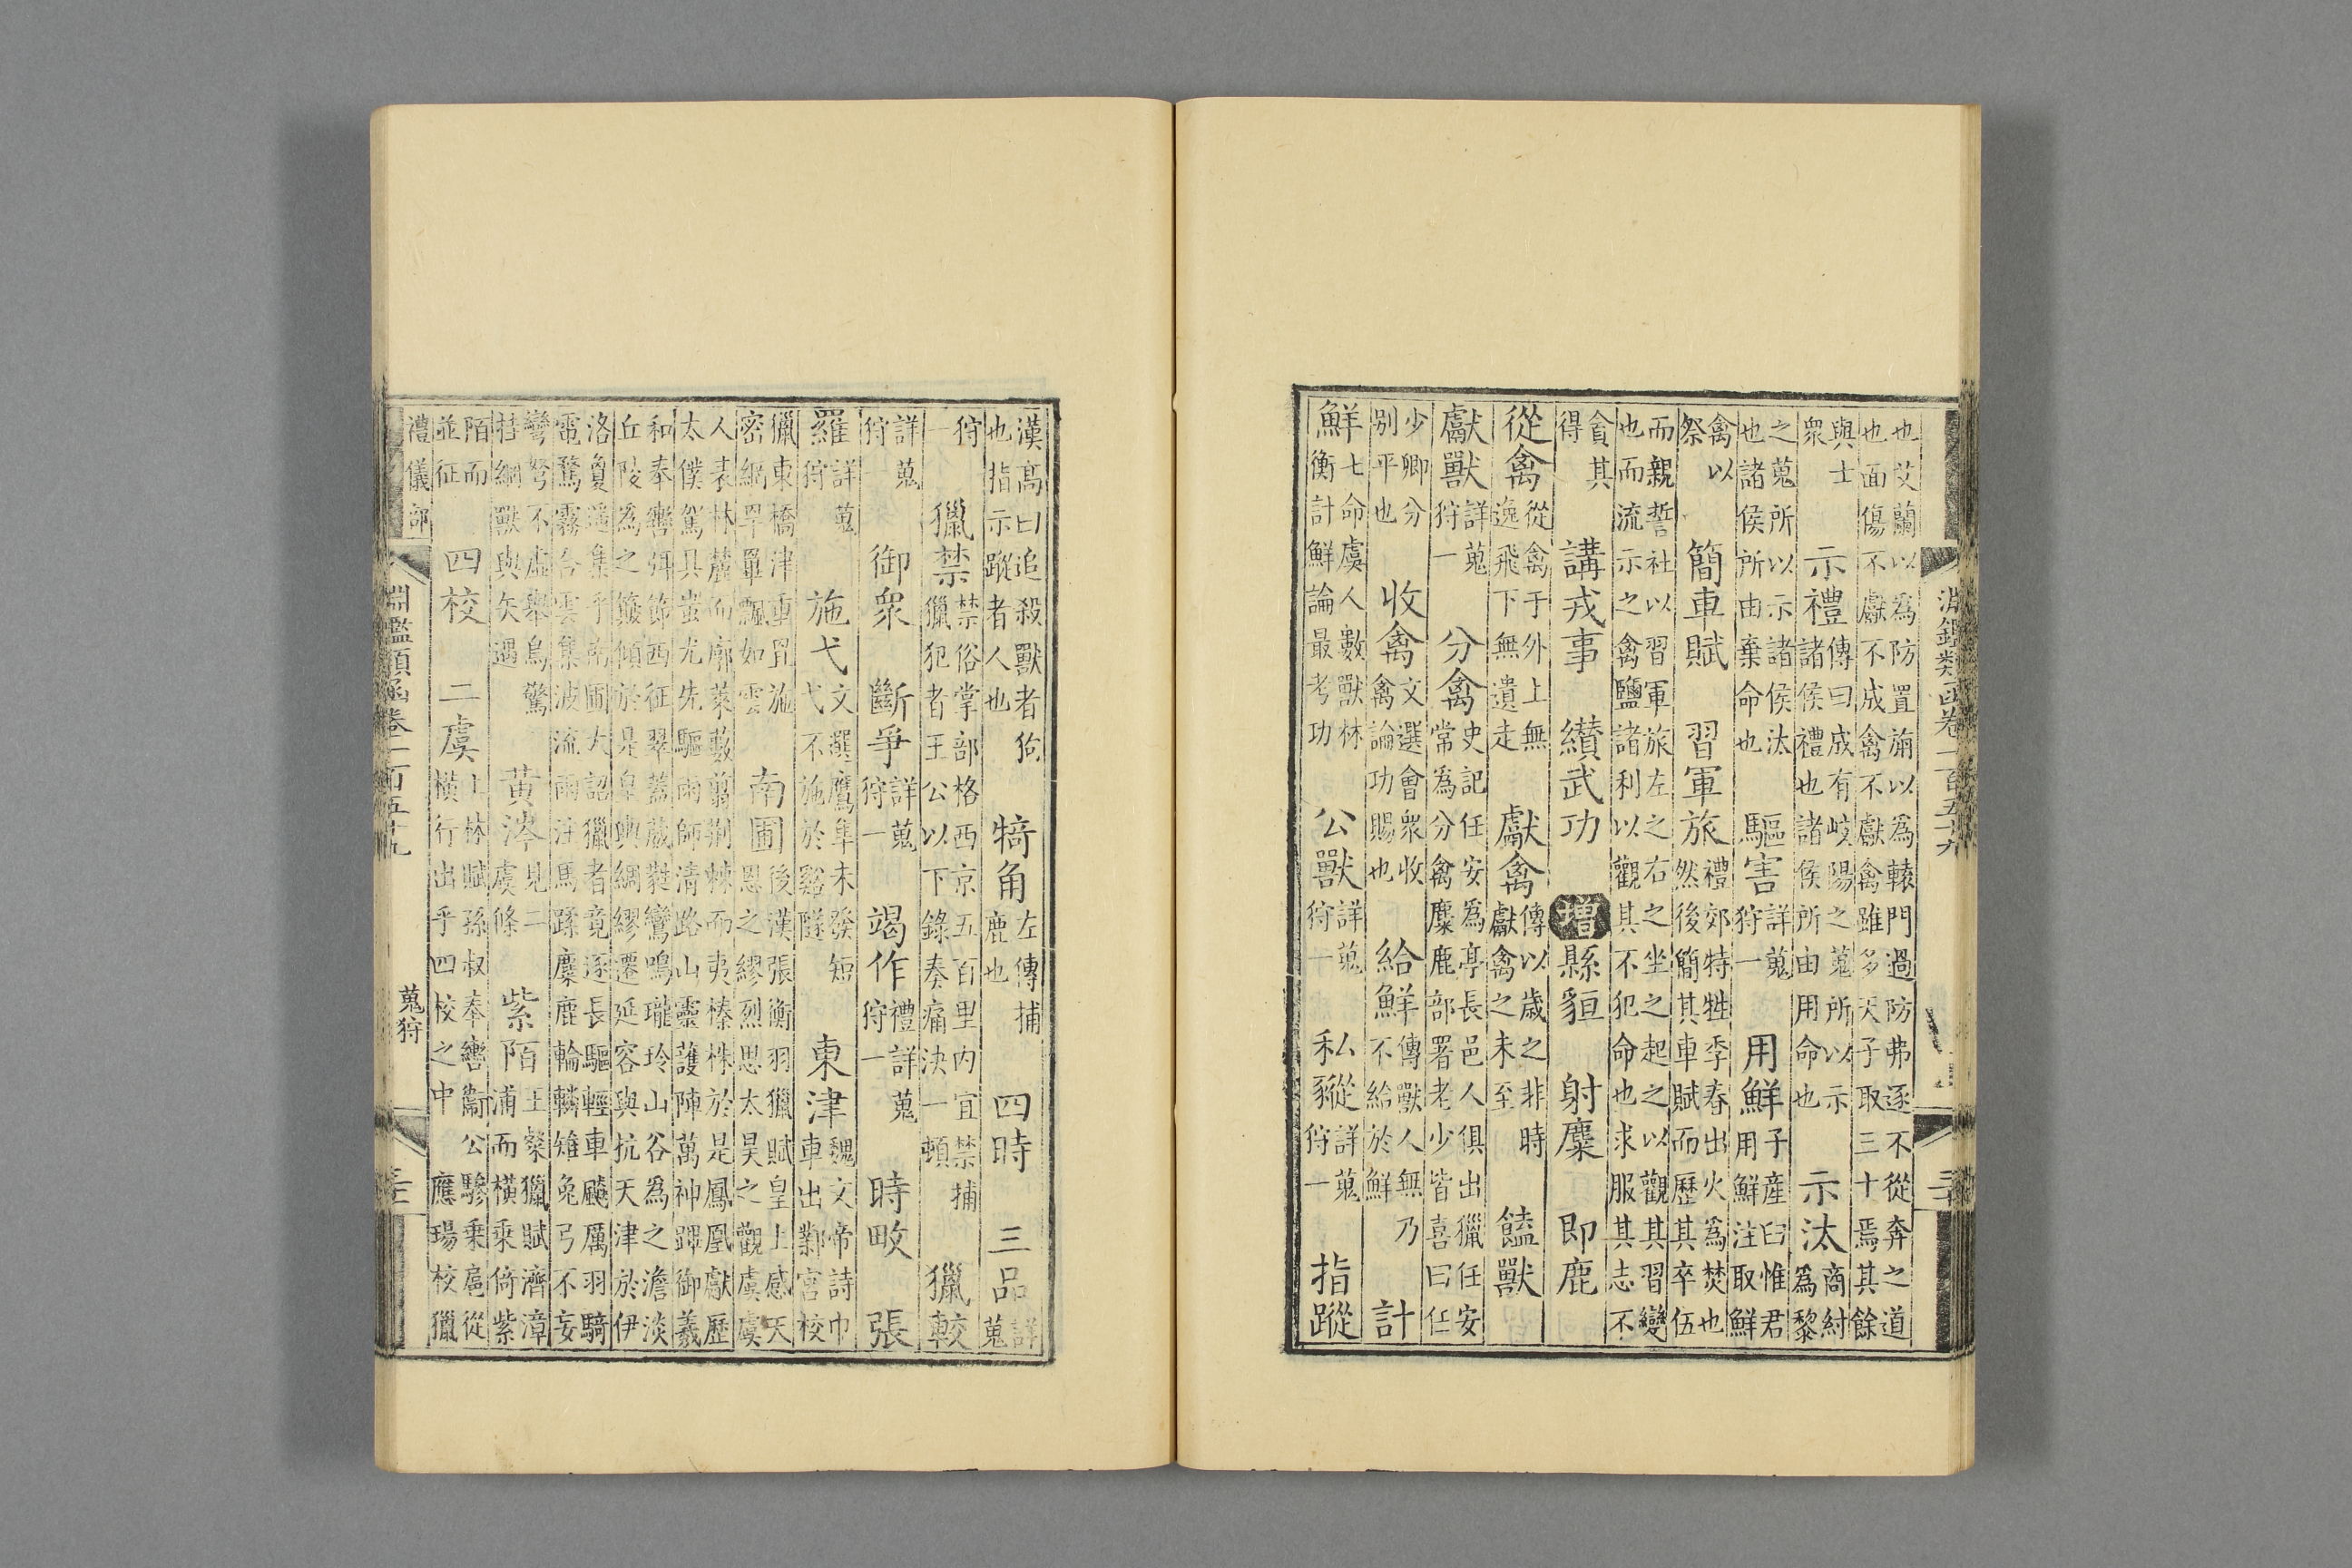 也艾蘭以為防置旃以為轅門過防弗逐不從奔之道
也面傷不獻不成禽不獻禽雖多天子取三十焉其餘
與士
衆
示禮
傳曰成有岐陽之蒐所以示
諸侯禮也諸侯所由用命也
示汰
商紂
為黎
之蒐所以示諸侯汰
也諸侯所由棄命也
驅害
詳蒐
狩一
用鮮
子產曰惟君
用鮮注取鮮
禽以
祭
簡車賦
習軍旅
禮郊特牲季春出火為焚也
然後簡其車賦而歷其卒伍
而親誓社以習軍旅左之右之坐之起之以觀其習變
也而流示之禽鹽諸利以觀其不犯命也求服其志不
貪其
得
講戎事
纘武功
增
縣貆
射麋
即鹿
從禽
從禽于外上無
逸飛下無遺走
獻禽
傳以歲之非時
獻禽之未至
饁獸
獻獸
詳蒐
狩一
分禽
史記任安為亭長邑人俱出獵任安
常為分禽麋鹿部署老少皆喜曰任
少卿分
別平也
收禽
文選會衆收
禽論功賜也
給鮮
傳獸人無乃
不給於鮮
計
鮮
七命虞人數獸林
衡計鮮論最考功
公獸
詳蒐
狩一
私豵
詳蒐
狩一
指蹤
漢高曰追殺獸者狗
也指示蹤者人也
犄角
左傳捕
鹿也
四時
三品
詳
蒐
狩
一
獵禁
禁俗掌部格西京五百里內宜禁捕
獵獵犯者王公以下錄奏痛決一頓
獵較
詳蒐
狩
御衆
斷爭
詳蒐
狩一
竭作
禮詳蒐
狩一
時畋
張
羅
詳蒐
狩
施弋
文選鷹隼未發短
弋不施於谿隧
東津
魏文帝詩巾
車出鄴宮校
獵東橋津重罝施
密網罕罼飄如雲
南圃
後漢張衡羽獵賦皇上感天
恩之繆烈思太昊之觀虞虞
人表林麓而廓萊藪翦荊棘而夷榛株於是鳳凰獻歷
太僕駕具蚩尤先驅雨師清路山靈護陣萬神蹕御羲
和奉轡弭節西征翠蓋葳蕤鸞鳴瓏玲山谷為之澹淡
丘陵為之簸傾於是皇輿綢繆遷延容與抗天津於伊
洛敻遙集乎南圃大詔獵者竟逐長驅輕車飈厲羽騎
電騖霧合雲集波流雨注馬蹂麋鹿輪轔雉兔弓不妄
彎弩不虛舉鳥驚
挂網獸與矢遇
黃涔
見二
虞條
紫陌
王粲獵賦濟漳
浦而橫乘倚紫
陌而
並征
四校
二虞
上林賦孫叔奉轡衞公驂乘扈從
橫行出乎四校之中
應瑒校獵
禮儀部
淵鑑類函卷一百五十九
蒐狩